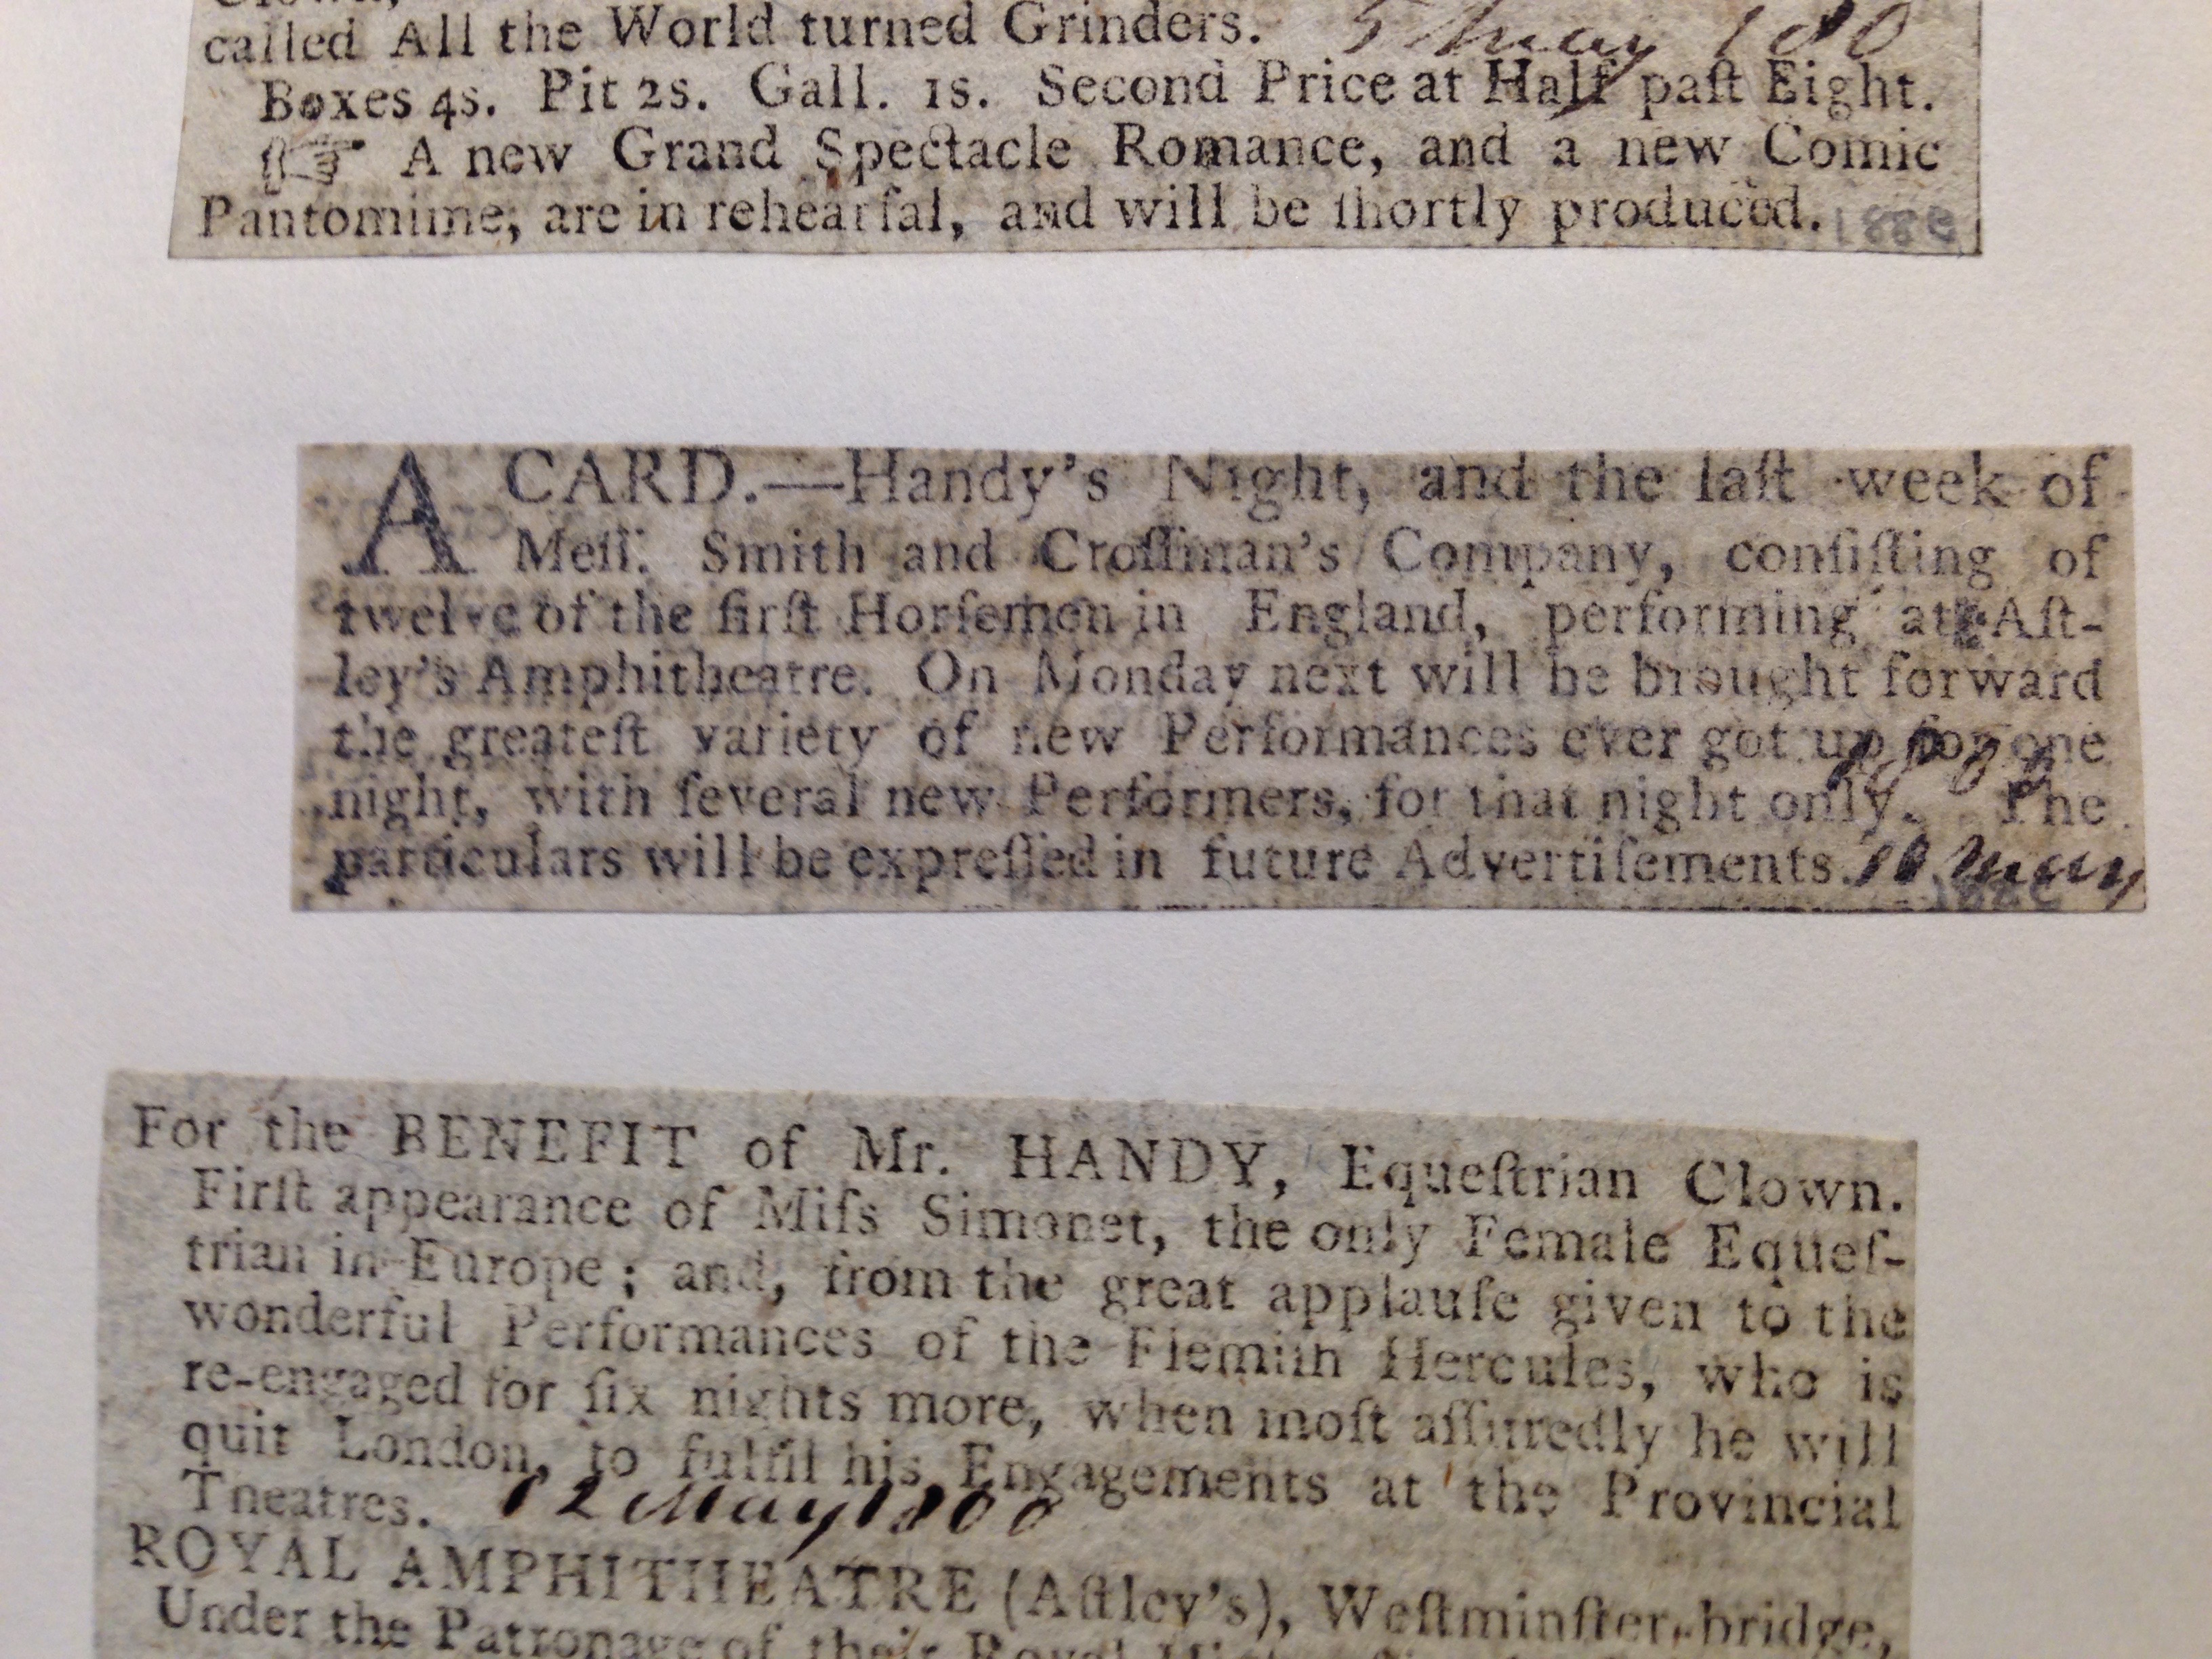 called All the World turned Grinders. 5 May 180
Boxes 4s. Pit 2s. Gall. 1s. Second Price at Half paſt Eight.
☞ A new Grand Spectacle Romance, and a new Comic
Pantomime, are in rehearſal, and will be ſhortly produced.
A CARD.—Handy's Night, and the laſt week of
Meſſ. Smith and Croſſman's Company, conſiſting of
twelve of the firſt Horſemen in England, performing at Aſt-
ley's Amphitheatre. On Monday next will be brought forward
the greateſt variety of new Performances ever got up for one
night, with ſeveral new Performers, for that night only. The
particulars will be expreſſed in future Advertiſements. 10 May
1800
For the BENEFIT of Mr. HANDY, Equeſtrian Clown.
Firſt appearance of Miſs Simonet, the only Female Equeſ-
trian in Europe; and, from the great applauſe given to the
wonderful Performances of the Flemiſh Hercules, who is
re-engaged for ſix nights more, when moſt aſſuredly he will
quit London, to fulfil his Engagements at the Provincial
Theatres. 12 May 1800
ROYAL AMPHITHEATRE (Aſtley's), Weſtminſter-bridge,
Under the Patronage of their Royal